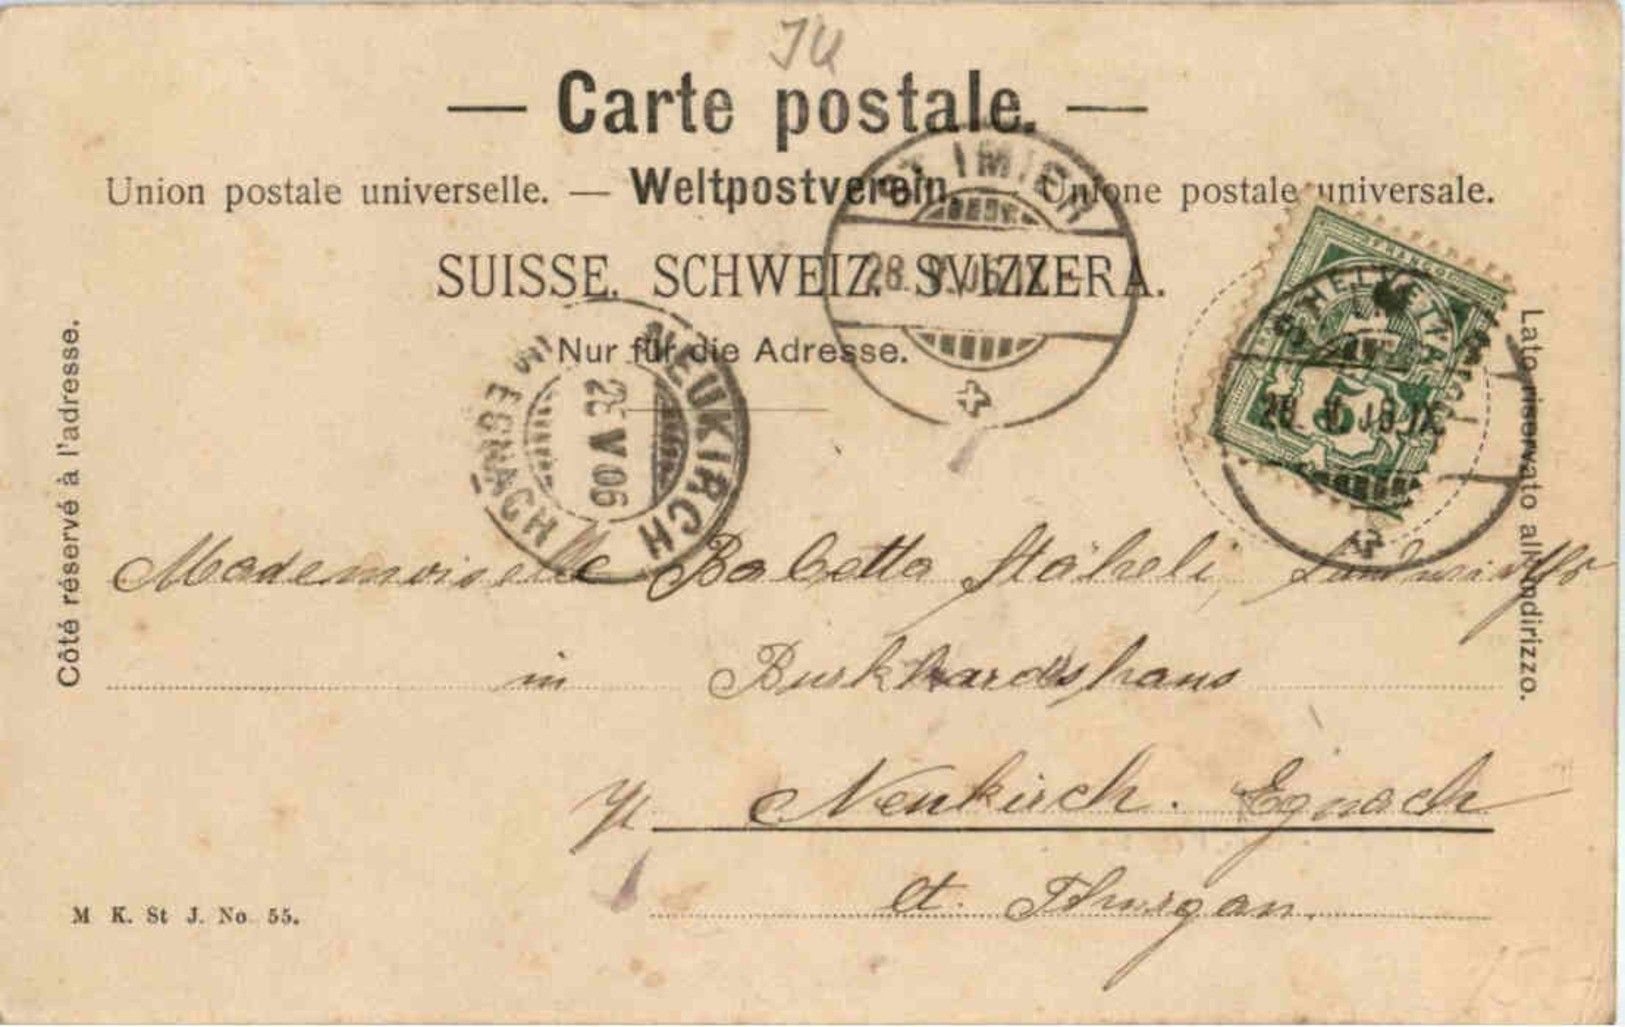 JU
— Carte postale. —
Union postale universelle. — Weltpostverein. — Unione postale universale.
SUISSE. SCHWEIZ. SVIZZERA.
Nur für die Adresse.
Côté réservé à l'adresse.
Lato riservato all'indirizzo.
ST IMIER
28. V. 06. IX
NEUKIRCH
28 V 06
EGNACH
FRANCO
HELVETIA
5
Mademoiselle Babetta Stäheli,
in Burkhardshaus
p/ Neukirch. Egnach
Ct. Thurgau.
M K. St J. No 55.